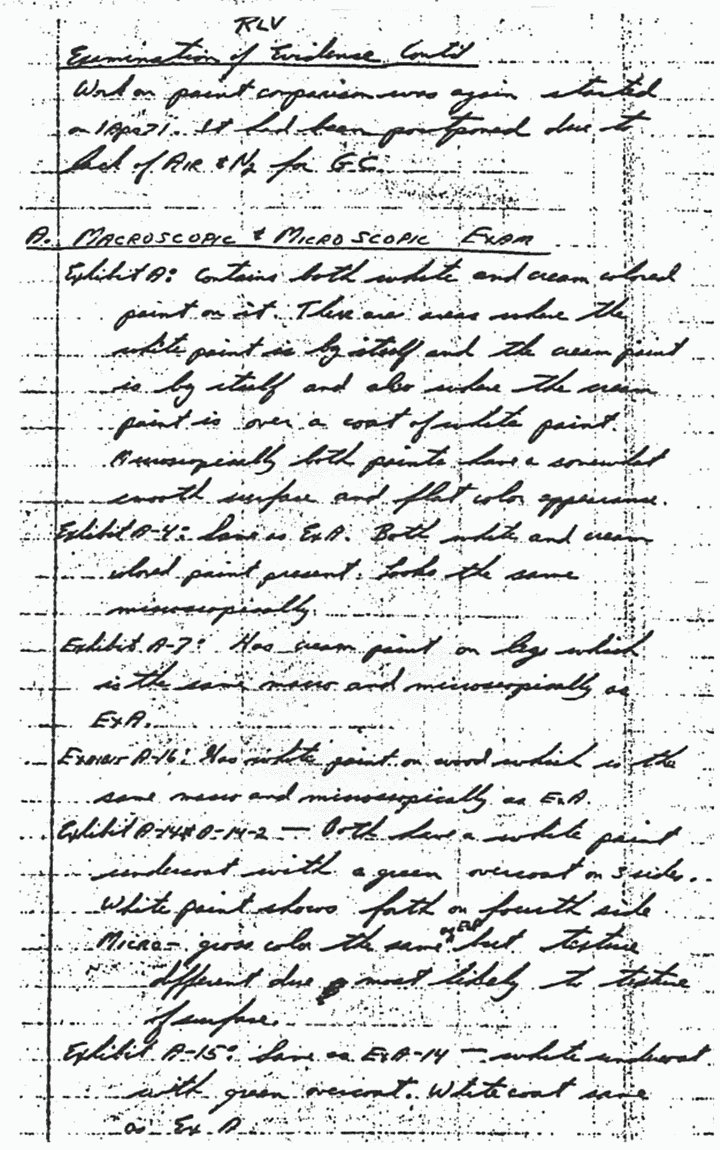 RLV
Examination of Evidence Cont'd
Work on paint comparison was again started
on 1Apr71. It had been postponed due to
lack of AIR & N2 for G.C.
A. MACROSCOPIC & MICROSCOPIC EXAM
Exhibit A: Contains both white and cream colored
paint on it. There are areas where the
white paint is by itself and the cream paint
is by itself and also where the cream
paint is over a coat of white paint.
Microscopically both paints have a somewhat
smooth surface and flat color appearance.
Exhibit A-4: Same as ExA. Both white and cream
colored paint present. Looks the same
microscopically.
Exhibit A-7: Has cream paint on legs which
is the same macro and microscopically as
ExA.
Exhibit A-16: Has white paint on wood which is the
same macro and microscopically as ExA.
Exhibit A-14 & A-14-2 — Both have a white paint
undercoat with a green overcoat on 3 sides.
White paint shows forth on fourth side.
Micro - gross color the same as ExA but texture
different due most likely to texture
of surface.
Exhibit A-15: Same as ExA-14 — white undercoat
with green overcoat. White coat same
as Ex A